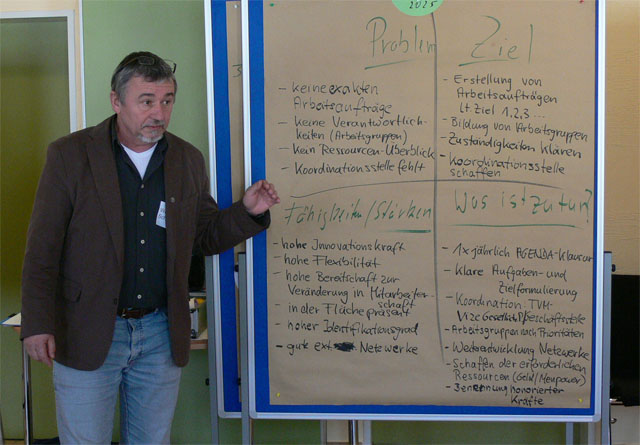 2025
Problem
- keine exakten
Arbeitsaufträge
- keine Verantwortlich-
keiten (Arbeitsgruppen)
- kein Ressourcen-Überblick
- Koordinationsstelle fehlt
Ziel
- Erstellung von
Arbeitsaufträgen
lt. Ziel 1.2.3 ...
- Bildung von Arbeitsgruppen
- Zuständigkeiten klären
- Koordinationsstelle
schaffen
Fähigkeiten/Stärken
- hohe Innovationskraft
- hohe Flexibilität
- hohe Bereitschaft zur
Veränderung in Mitarbeiter-
schaft
- in der Fläche präsent
- hoher Identifikationsgrad
- gute ext. Netzwerke
Was ist zu tun?
- 1x jährlich AGENDA-Klausur
- Klare Aufgaben- und
Zielformulierung
- Koordination:
- Arbeitsgruppen nach Prioritäten
- Weiterentwicklung Netzwerke
- Schaffen der erforderlichen
Ressourcen (Geld/Menpower)
- Benennung honorierter
Kräfte